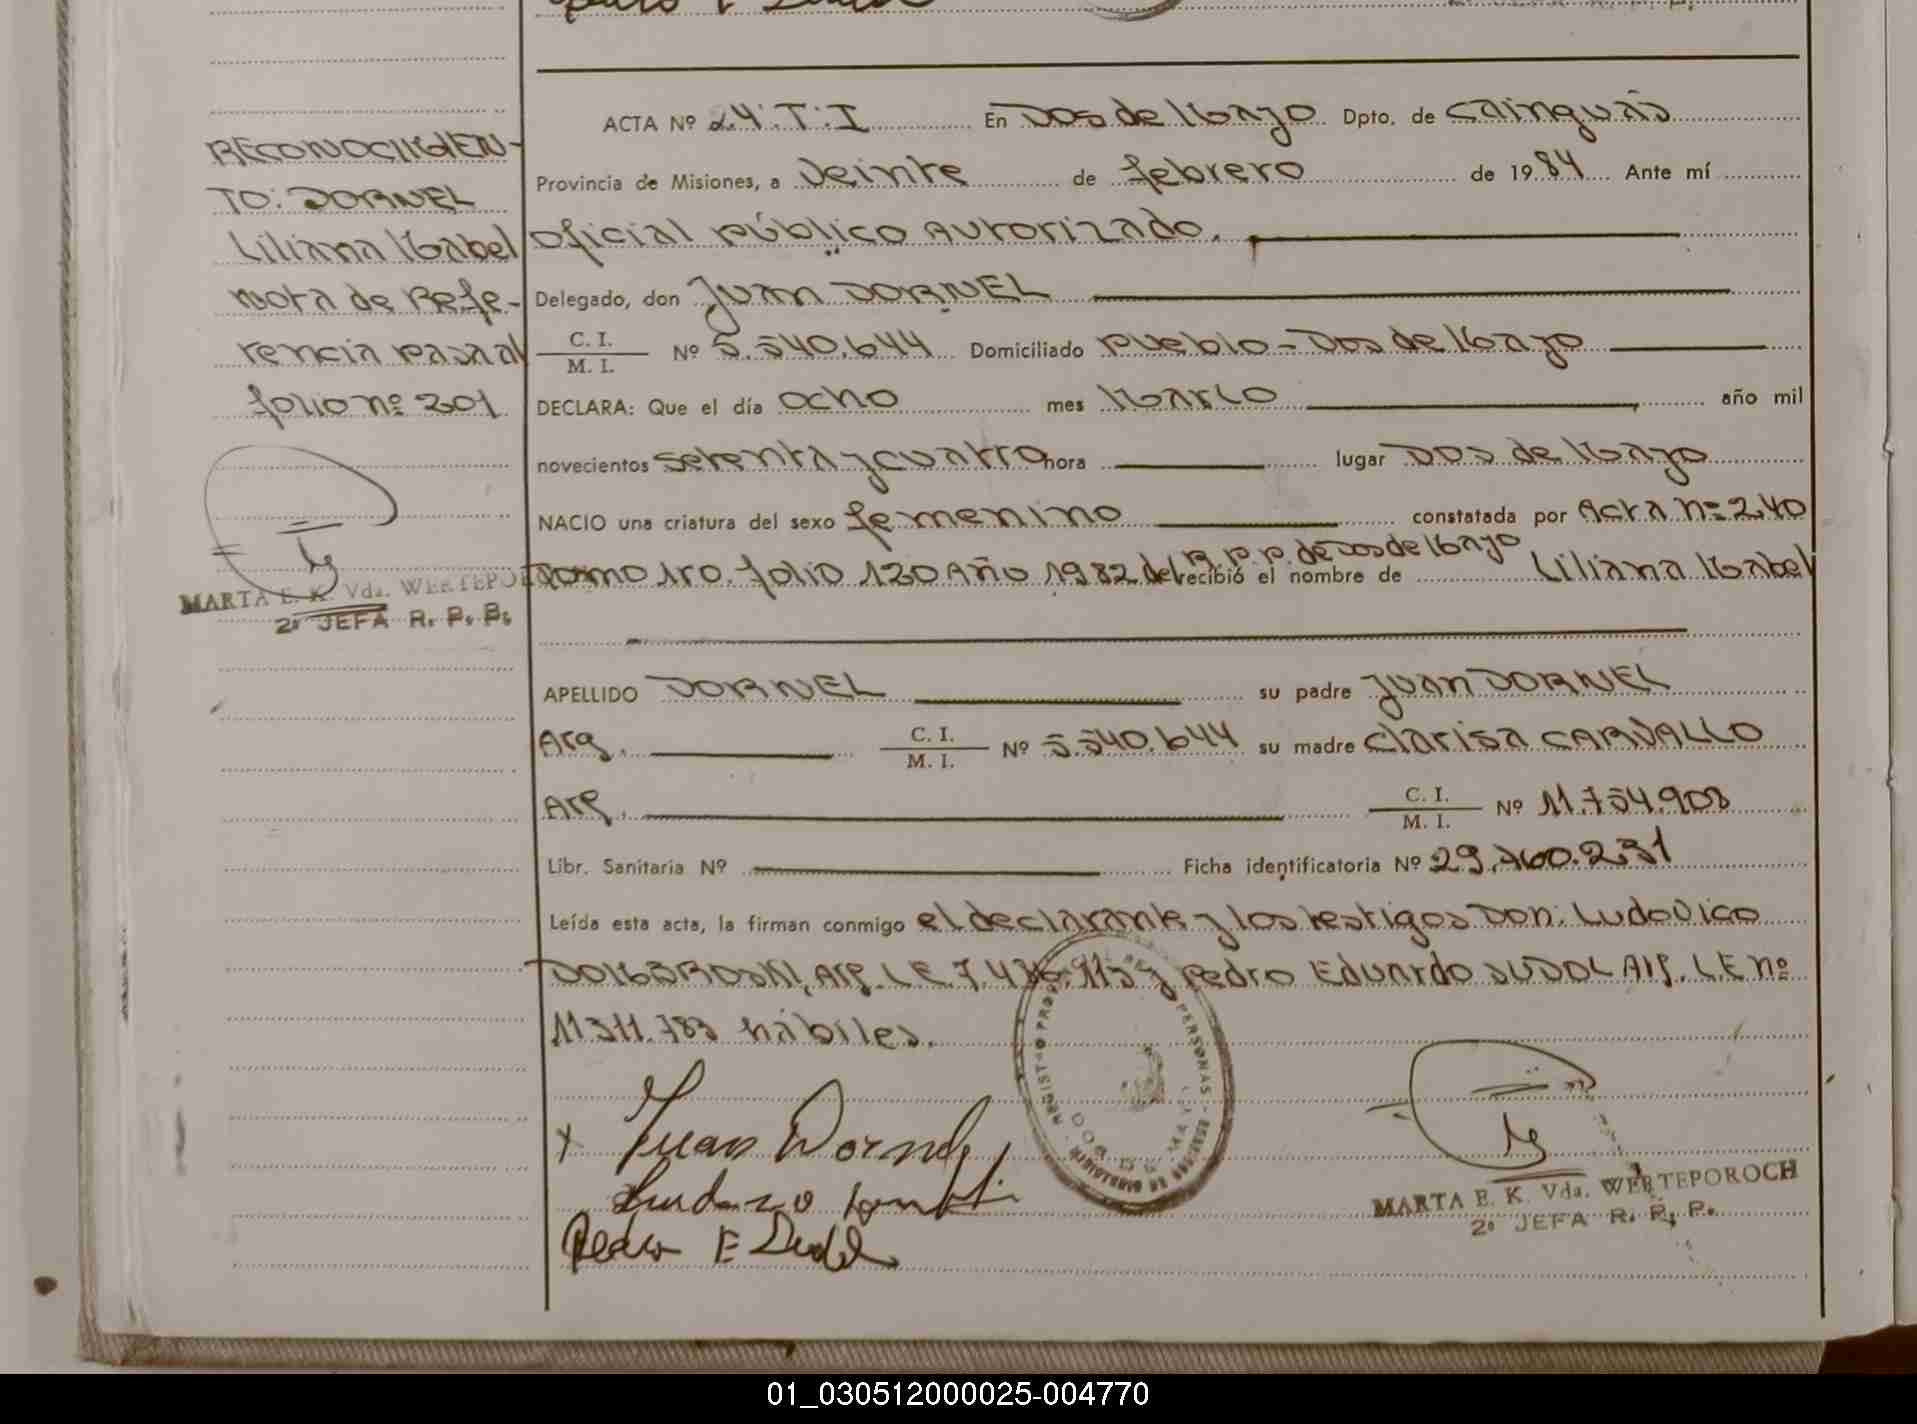 ACTA Nº 24. T. I En Dos de Mayo Dpto. de Cainguás
Provincia de Misiones, a Veinte de febrero de 1984 Ante mí
oficial público Autorizado.
Delegado, don Juan DORNEL
C. I.
M. I. Nº 5.540.644 Domiciliado Pueblo - Dos de Mayo
DECLARA: Que el día ocho mes Marzo año mil
novecientos setenta y cuatro hora lugar Dos de Mayo
NACIO una criatura del sexo femenino constatada por Acta nº 240
Tomo 1ro. folio 120 Año 1982 del R.P.P. de Dos de Mayo recibió el nombre de Liliana Mabel
APELLIDO DORNEL su padre Juan DORNEL
Arg. C. I.
M. I. Nº 5.540.644 su madre Clarisa CARVALLO
Arg. C. I.
M. I. Nº 11.754.908
Libr. Sanitaria Nº Ficha identificatoria Nº 29.760.231
Leída esta acta, la firman conmigo el declarante y los testigos Don: Ludovico
Arg. L.E. y Pedro Eduardo SUDOL Arg. L.E nº
11311.783 hábiles.
RECONOCIMIEN-
TO: DORNEL
Liliana Mabel
nota de Refe-
rencia pasa al
folio nº 201
MARTA E. K. Vda. WERTEPOROCH
2º JEFA R. P. P.
Juan Dornel
Pedro E Sudol
REGISTRO PERSONAS
DOS DE MAYO
MARTA E. K. Vda. WERTEPOROCH
2º JEFA R. P. P.
01_030512000025-004770